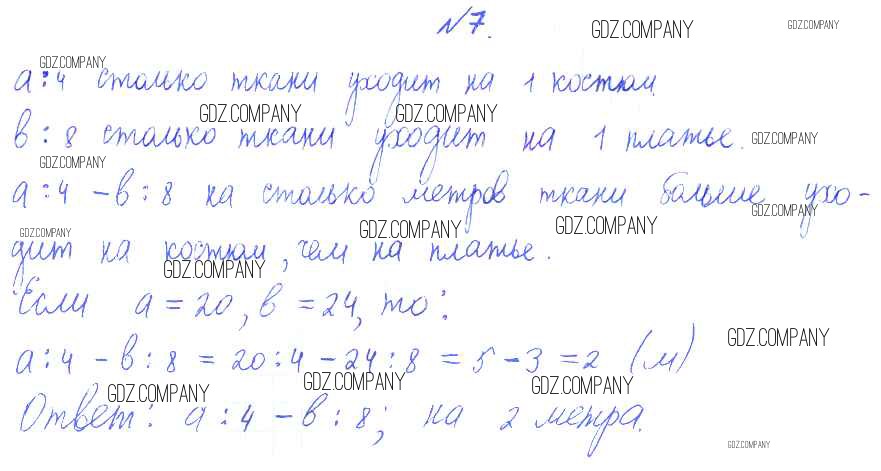 №7.
GDZ.COMPANY GDZ.COMPANY
GDZ.COMPANY
а:4 столько ткани уходит на 1 костюм.
GDZ.COMPANY GDZ.COMPANY
в:8 столько ткани уходит на 1 платье.
GDZ.COMPANY
GDZ.COMPANY
а:4 - в:8 на столько метров ткани больше ухо-
GDZ.COMPANY
GDZ.COMPANY GDZ.COMPANY GDZ.COMPANY
дит на костюм, чем на платье.
GDZ.COMPANY
Если а = 20, в = 24, то:
GDZ.COMPANY
а:4 - в:8 = 20:4 - 24:8 = 5 - 3 = 2 (м)
GDZ.COMPANY GDZ.COMPANY GDZ.COMPANY
Ответ: а:4 - в:8; на 2 метра.
GDZ.COMPANY